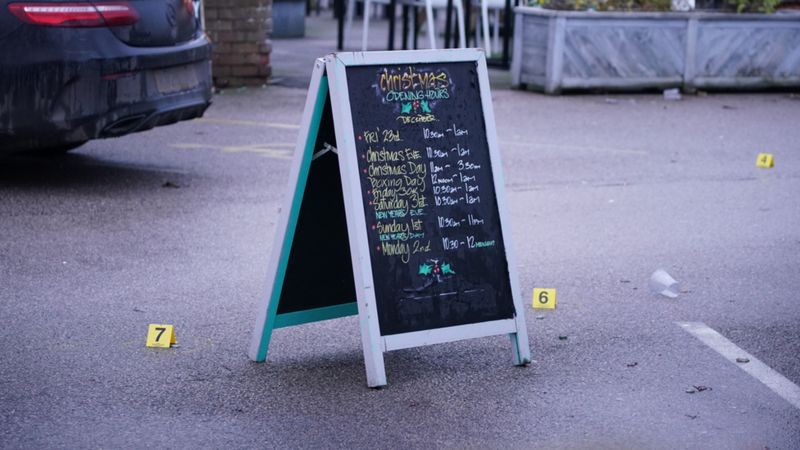 Christmas
OPENING HOURS
DECEMBER
FRI 23rd 10:30am - 1am
Christmas Eve 10:30am - 1am
Christmas Day 11am - 3:30pm
Boxing Day 12noon - 1am
Friday 30th 10:30am - 1am
Saturday 31st 10:30am - 1am
NEW YEARS EVE
Sunday 1st 10:30am - 11pm
NEW YEARS DAY
Monday 2nd 10:30 - 12 MIDNIGHT
4
6
7